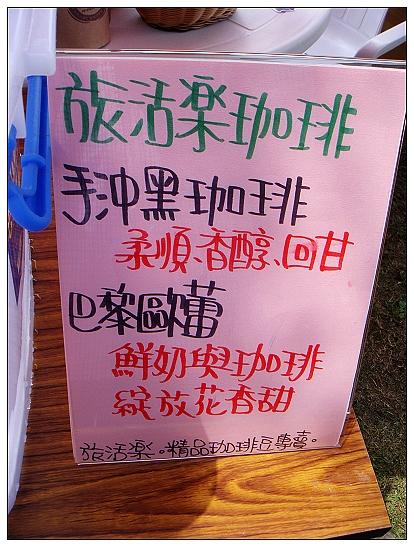 旅活楽珈琲
手沖黑珈琲
柔順、香醇、回甘
巴黎歐蕾
鮮奶與珈琲
綻放花香甜
旅活楽。精品珈琲豆專賣。